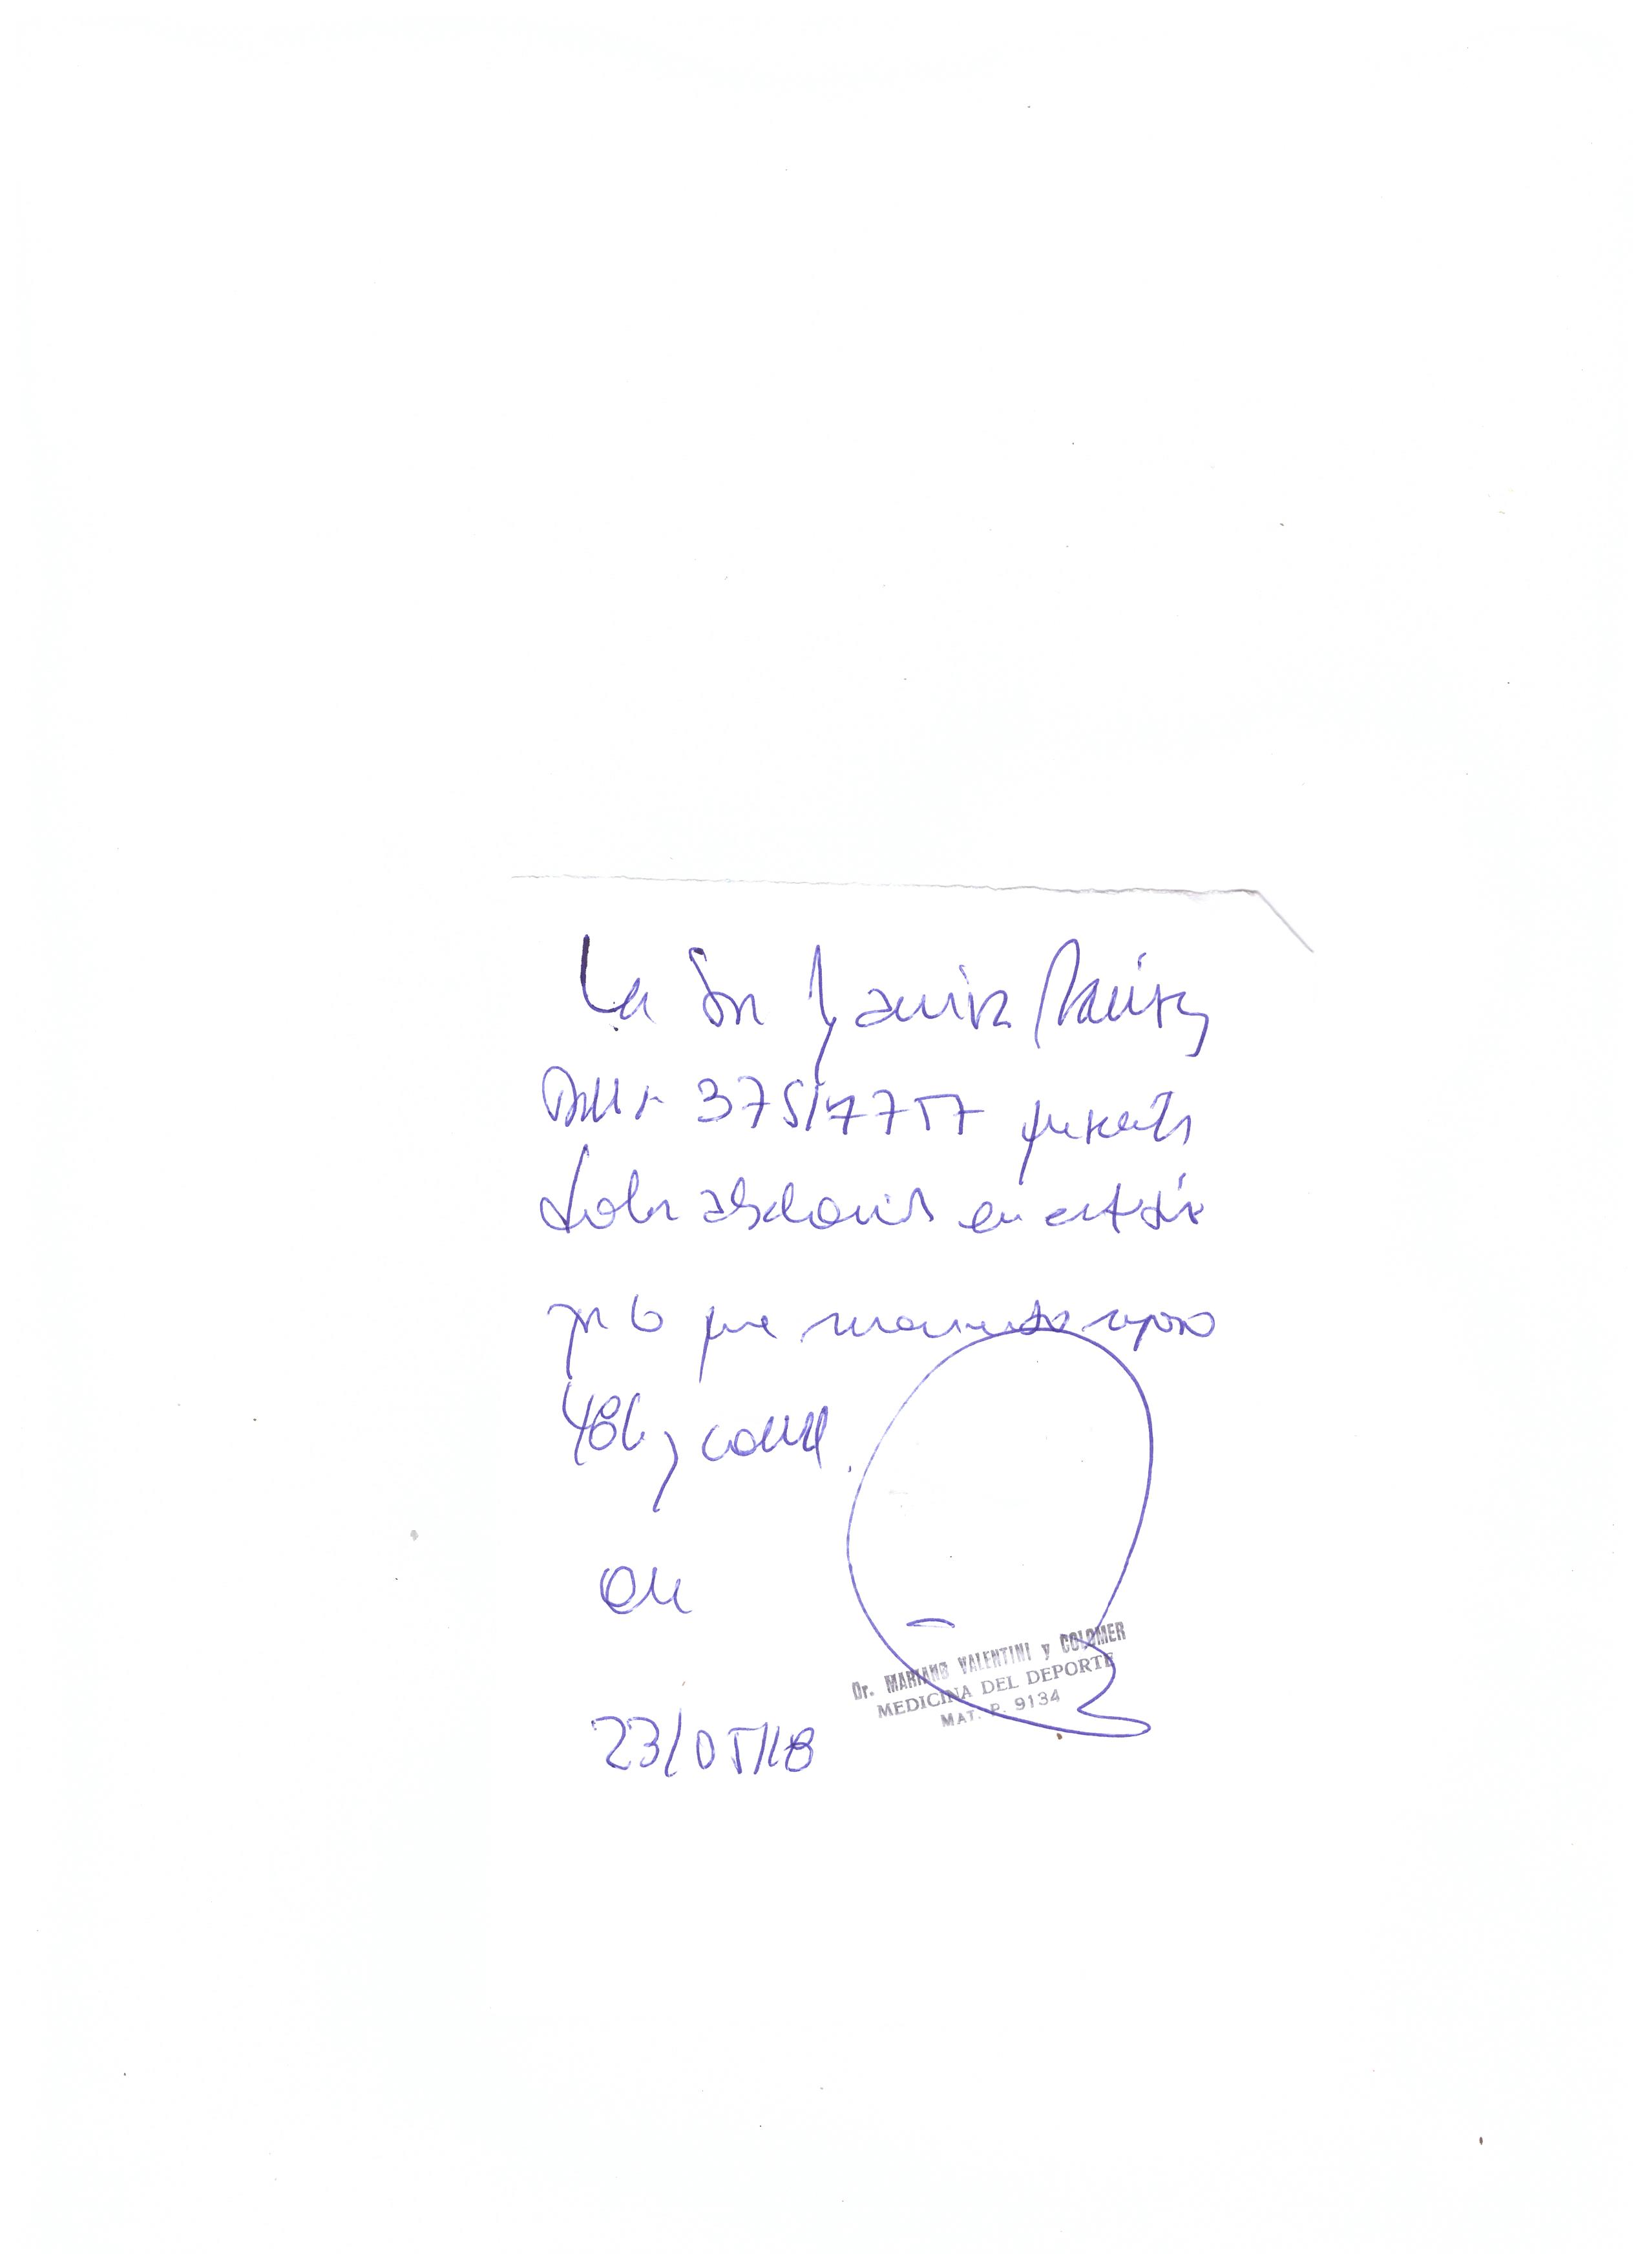 La Sra Yamila
DNI n 37517757 presenta
dolor abdominal en estudio
por lo que recomiendo reposo
48h y control.
23/05/18
Dr. MARIANO VALENTINI y COLOMER
MEDICINA DEL DEPORTE
MAT. P. 9134